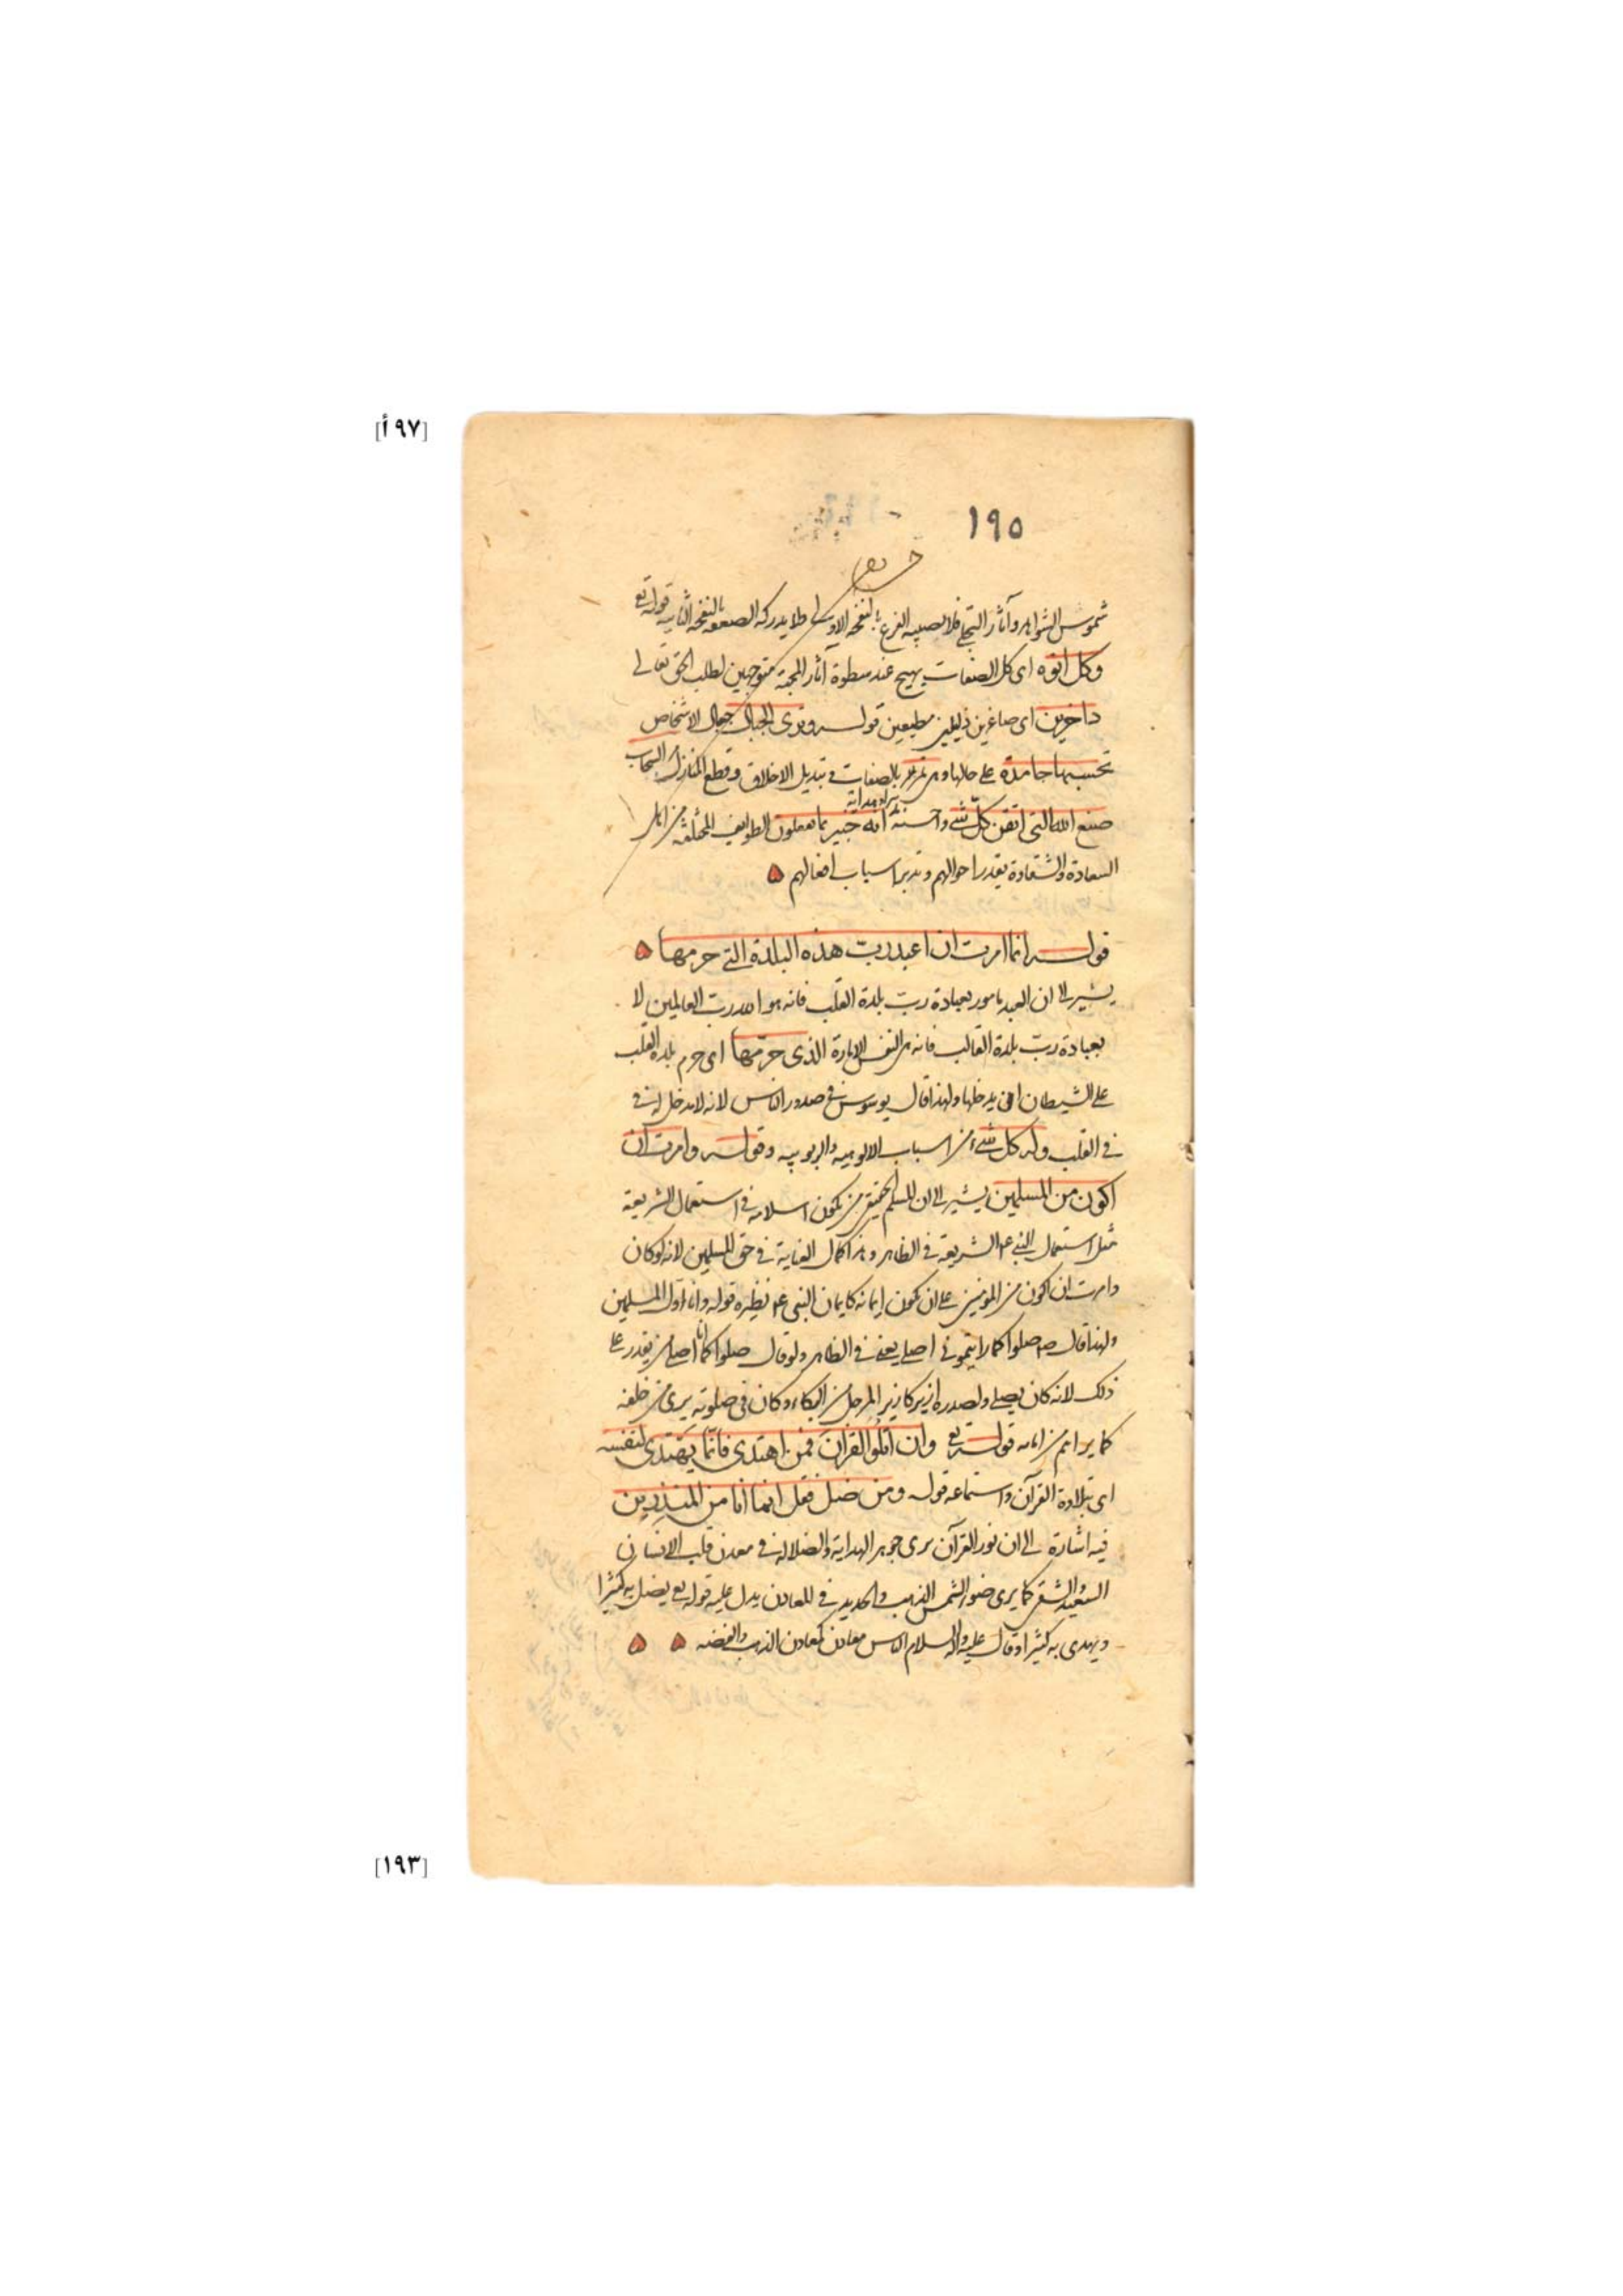 [٩٧أ]
١٩٥
شموس الشواهد وآثار التجلى فلا يصيبه الفزع بالنفخة الاولى ولا يدركه الصعقة بالنفخة الثانية قوله تع
وكل اتوه اى كل الصفات يهيج عند سطوة آثار المحبة متوجهين لطلب الحق تعالى
داخرين اى صاغرين ذليلين مطيعين قوله وترى الجبال جبال الاشخاص
تحسبها جامدة على حالها وهى تمر مر بالصفات فى تبديل الاخلاق وقطع المنازل السحاب
صنع الله التى اتقن كل شئ واحسنه انه خبير بما تفعلون الطوايف المختلفة من اهل
السعادة والشقاوة بقدر احوالهم وتدبر اسباب افعالهم
قوله انما امرت ان اعبد رب هذه البلدة التى حرمها
يشير الى ان العبد مامور بعبادة رب بلدة القلب فانه هو الله رب العالمين لا
بعبادة رب بلدة القالب فانه هى النفس الامارة الذى حرمها اى حرم بلدة القلب
على الشيطان ان يدخلها ولهذا قال يوسوس فى صدور الناس لانه لا مدخل له فى
فى القلب وله كل شئ من اسباب الالوهية والربوبية وقوله وامرت ان
اكون من المسلمين يشير الى ان المسلم الحقيقى من يكون اسلامه فى استعمال الشريعة
مثل استعمال النبى عم الشريعة فى الظاهر وهذا كمال الغاية فى حق المسلمين لانه لو كان
وامرت ان اكون من المؤمنين على ان يكون ايمانه كايمان النبى عم نظيره قوله وانا اول المسلمين
ولهذا قال صم صلوا كما رايتمونى اصلى يعنى فى الظاهر ولو قال صلوا كما انا اصلى من يقدر على
ذلك لانه كان يصلى ولصدره ازيز كازيز المرجل من البكاء وكان فى صلوته يرى من خلفه
كما يراهم من امامه قوله تع وان اتلو القرآن فمن اهتدى فانما يهتدى لنفسه
اى بتلاوة القرآن واستماعه قوله ومن ضل فقل انما انا من المنذرين
فيه اشارة الى ان نور القرآن يرى جوهر الهداية والضلالة فى معدن قلب الانسانى
السعيد والشقى كما يرى ضوء الشمس الذهب والحديد فى المعادن يدل عليه قوله تع يضل به كثيرا
ويهدى به كثيرا وقال عليه والسلام الناس معادن كمعادن الذهب والفضه
[١٩٣]